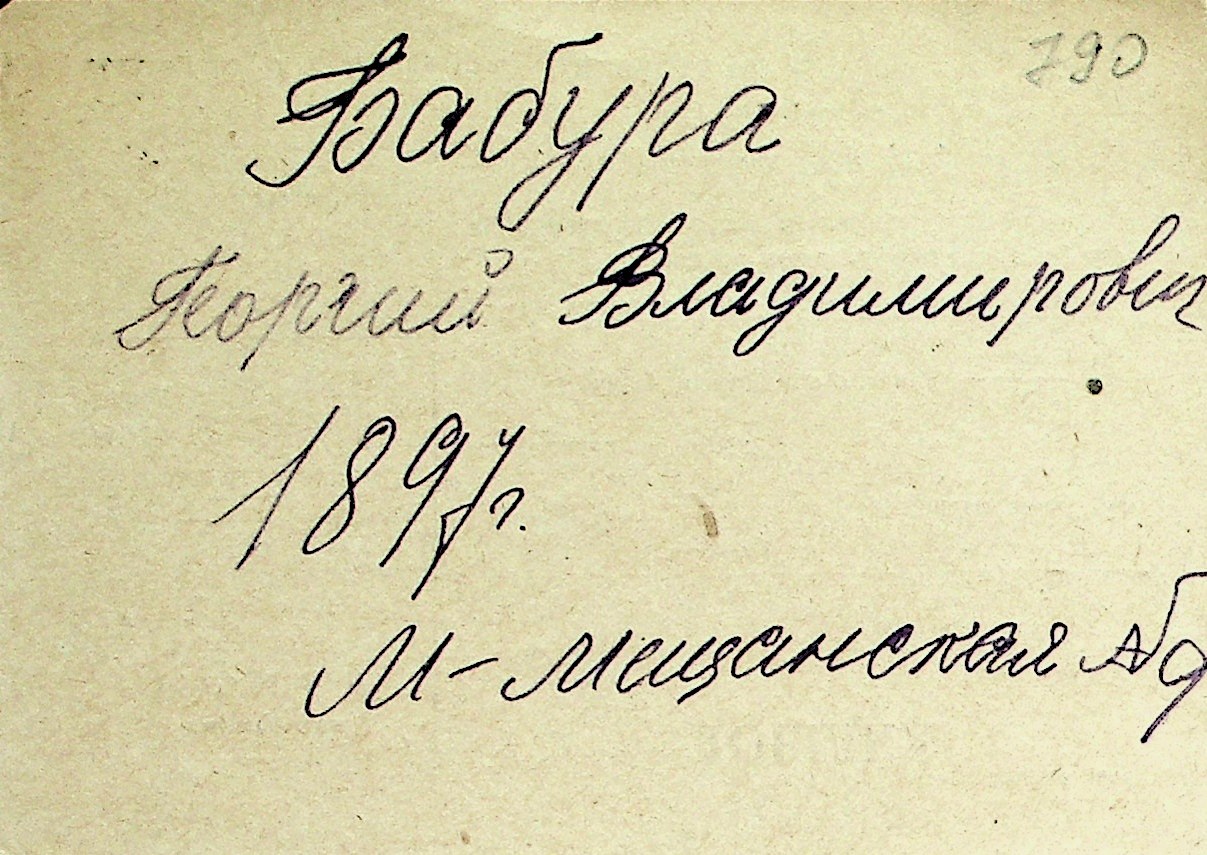 790
Бабура
Георгий Владимирович
1897г.
М-Мещанская